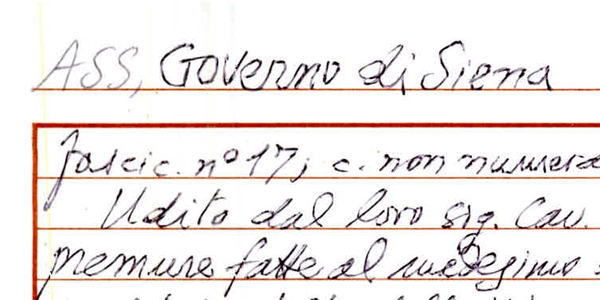 ASS, Governo di Siena
fascic. nº 17, c. non numera
Udito dal loro sig. Cav.
premure fatte al medesimo